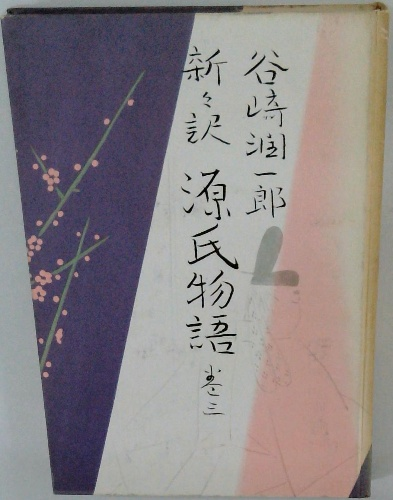 谷崎潤一郎
新々訳 源氏物語 巻三